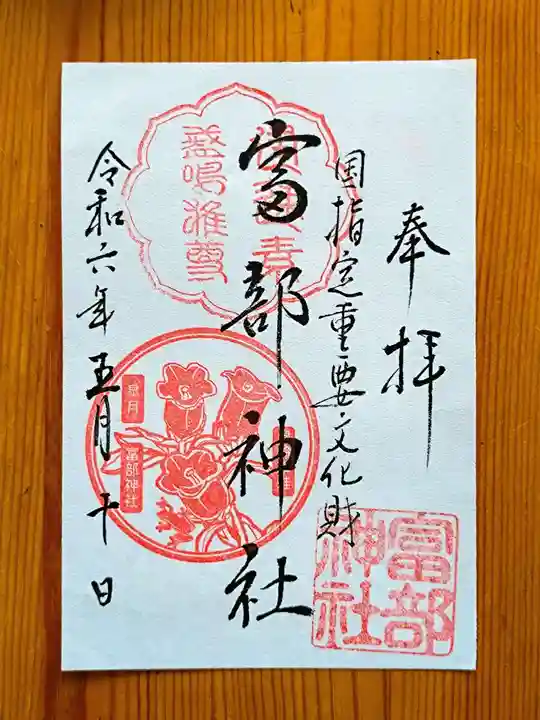 奉拝
国指定重要文化財
富部神社
令和六年五月十日
富部
神社
蓋鳴雅尊
富部神社